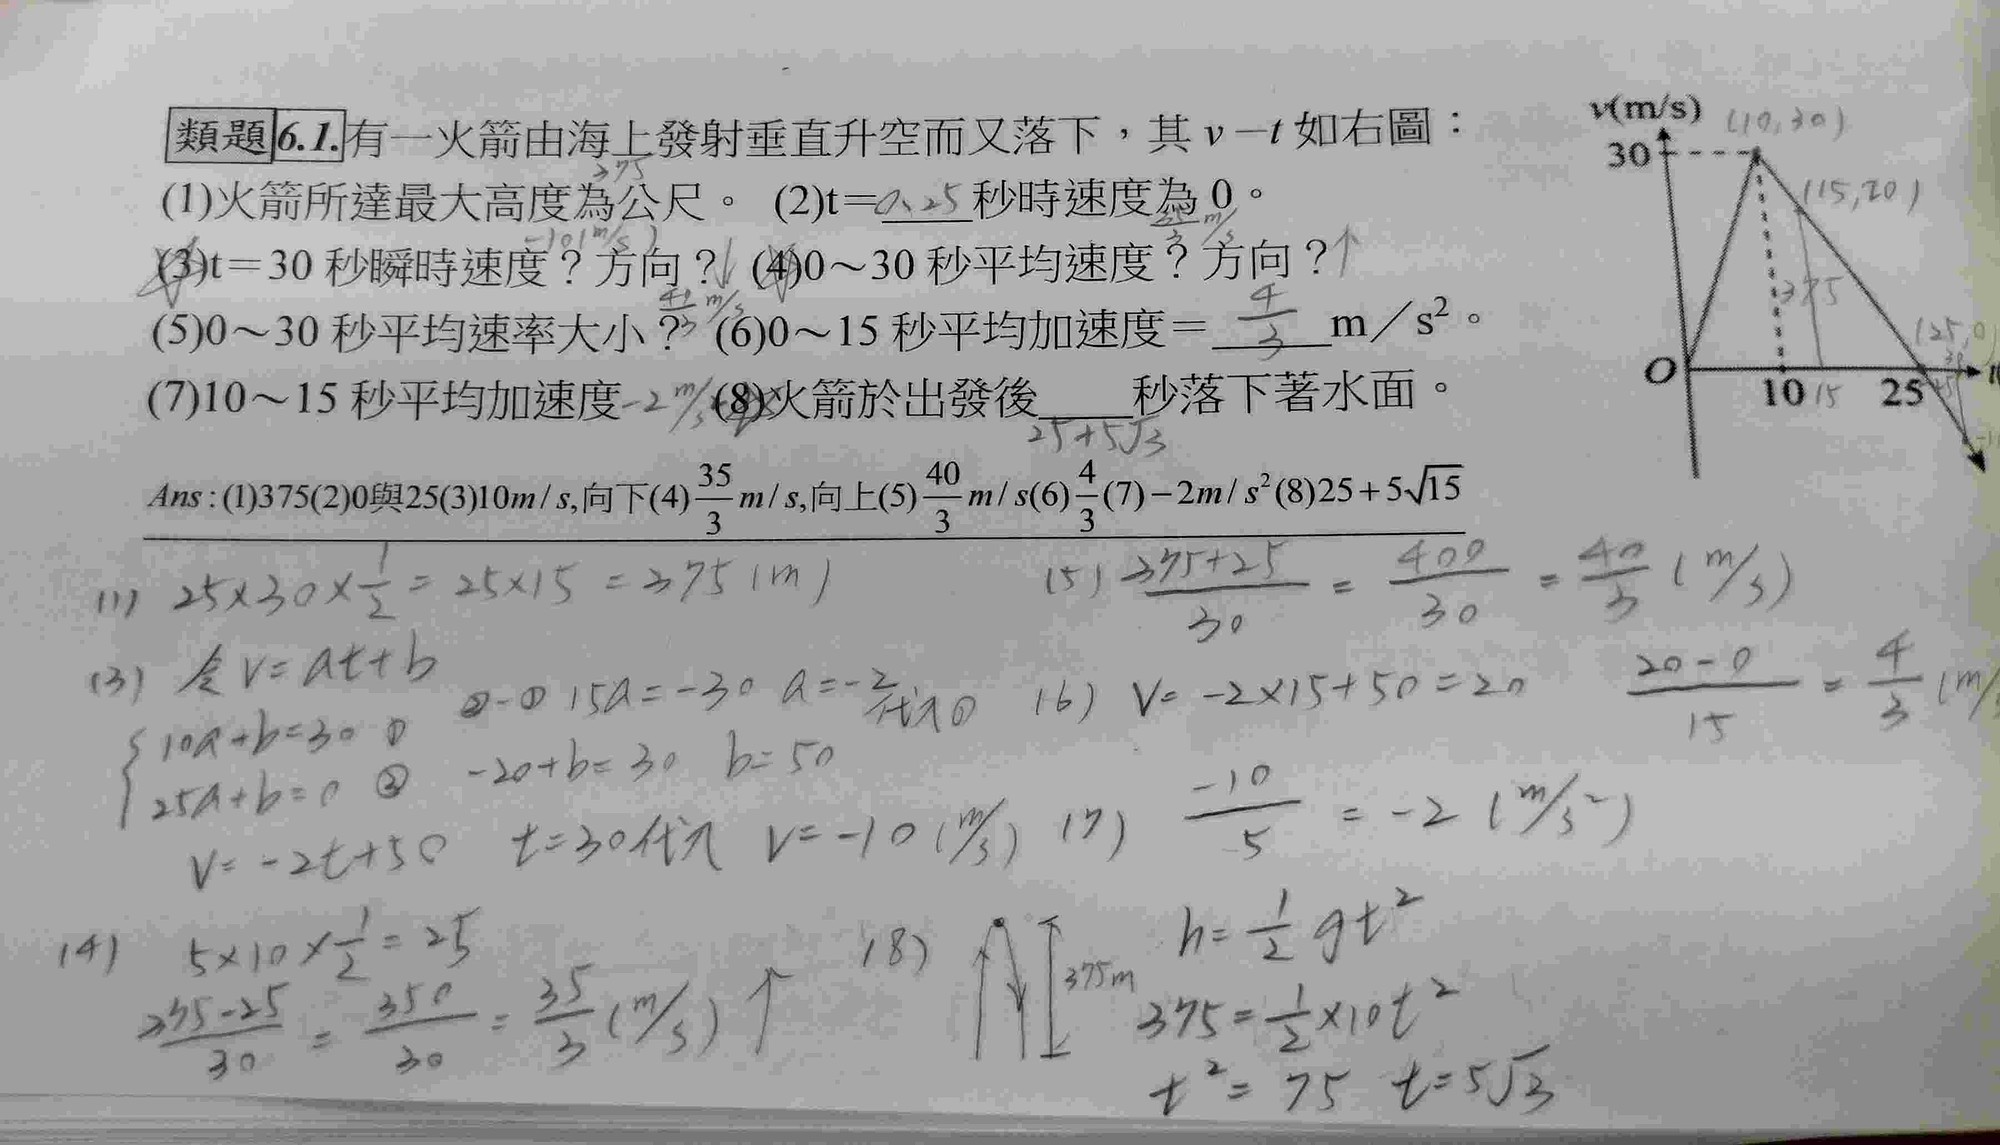 類題6.1.有一火箭由海上發射垂直升空而又落下，其 v－t 如右圖：
375
(1)火箭所達最大高度為公尺。 (2)t＝0、25秒時速度為 0。
-10(m/s) 35/3 m/s
(3)t＝30 秒瞬時速度？方向？↓ (4)0～30 秒平均速度？方向？↑
40/3 m/s
(5)0～30 秒平均速率大小？ (6)0～15 秒平均加速度＝ 4/3 m／s²。
(7)10～15 秒平均加速度 -2 m/s (8)火箭於出發後____秒落下著水面。
25+5√3
Ans:(1)375(2)0與25(3)10m/s,向下(4)35/3 m/s,向上(5)40/3 m/s(6)4/3(7)－2m/s²(8)25+5√15
v(m/s) (10,30)
30
(15,20)
375
(25,0)
O 10 15 25
(1) 25×30×1/2 = 25×15 = 375 (m)
(3) 令 v= at+b
{10a+b=30 ① ②-① 15a=-30 a=-2 代入①
25a+b=0 ② -20+b=30 b=50
v= -2t+50 t=30代入 v=-10 (m/s)
(4) 5×10×1/2 = 25
375-25/30 = 350/30 = 35/3 (m/s) ↑
(5) 375+25/30 = 400/30 = 40/3 (m/s)
(6) v= -2×15+50=20 20-0/15 = 4/3 (m/
(7) -10/5 = -2 (m/s²)
(8) 375m h=1/2 gt²
375=1/2×10t²
t²= 75 t=5√3